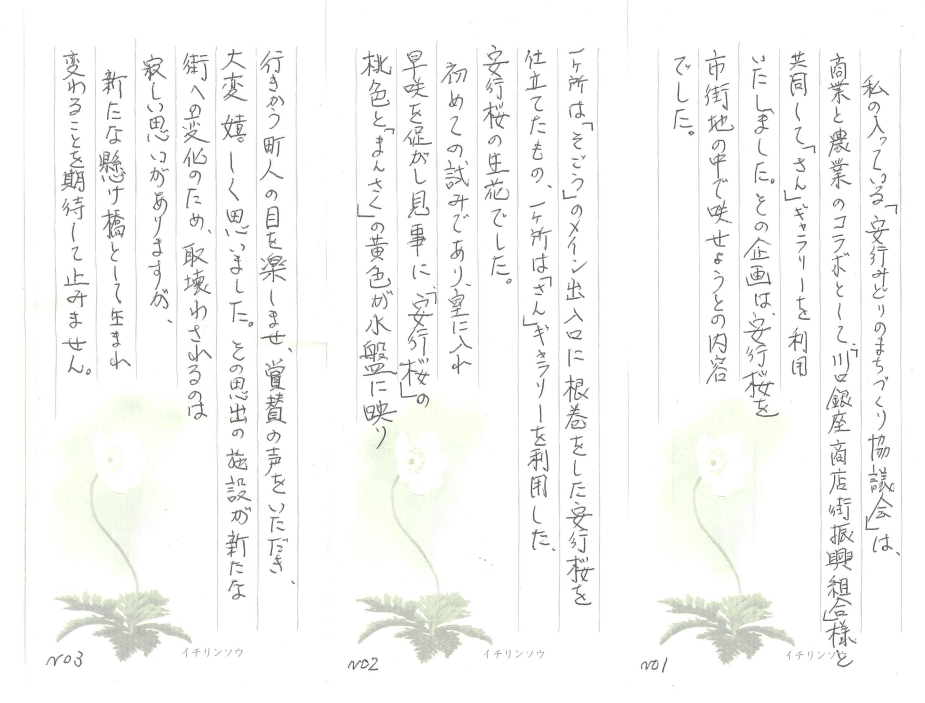 私の入っている「安行みどりのまちづくり協議会」は、
商業と農業のコラボとして、「川口銀座商店街振興組合」様と
共同して「さん」ギャラリーを利用
いたしました。その企画は、安行桜を
市街地の中で咲せようとの内容
でした。
イチリンソウ
NO1
一ヶ所は「そごう」のメイン出入口に根巻をした安行桜を
仕立てたもの、一ヶ所は「さん」ギャラリーを利用した、
安行桜の生花でした。
初めての試みであり、室に入れ
早咲を促がし見事に、「安行桜」の
桃色と「まんさく」の黄色が水盤に映り
イチリンソウ
NO2
行きかう町人の目を楽しませ、賞賛の声をいただき、
大変嬉しく思いました。その思出の施設が新たな
街への変化のため、取壊わされるのは
寂しい思いがありますが、
新たな懸け橋として生まれ
変わることを期待して止みません。
イチリンソウ
NO3